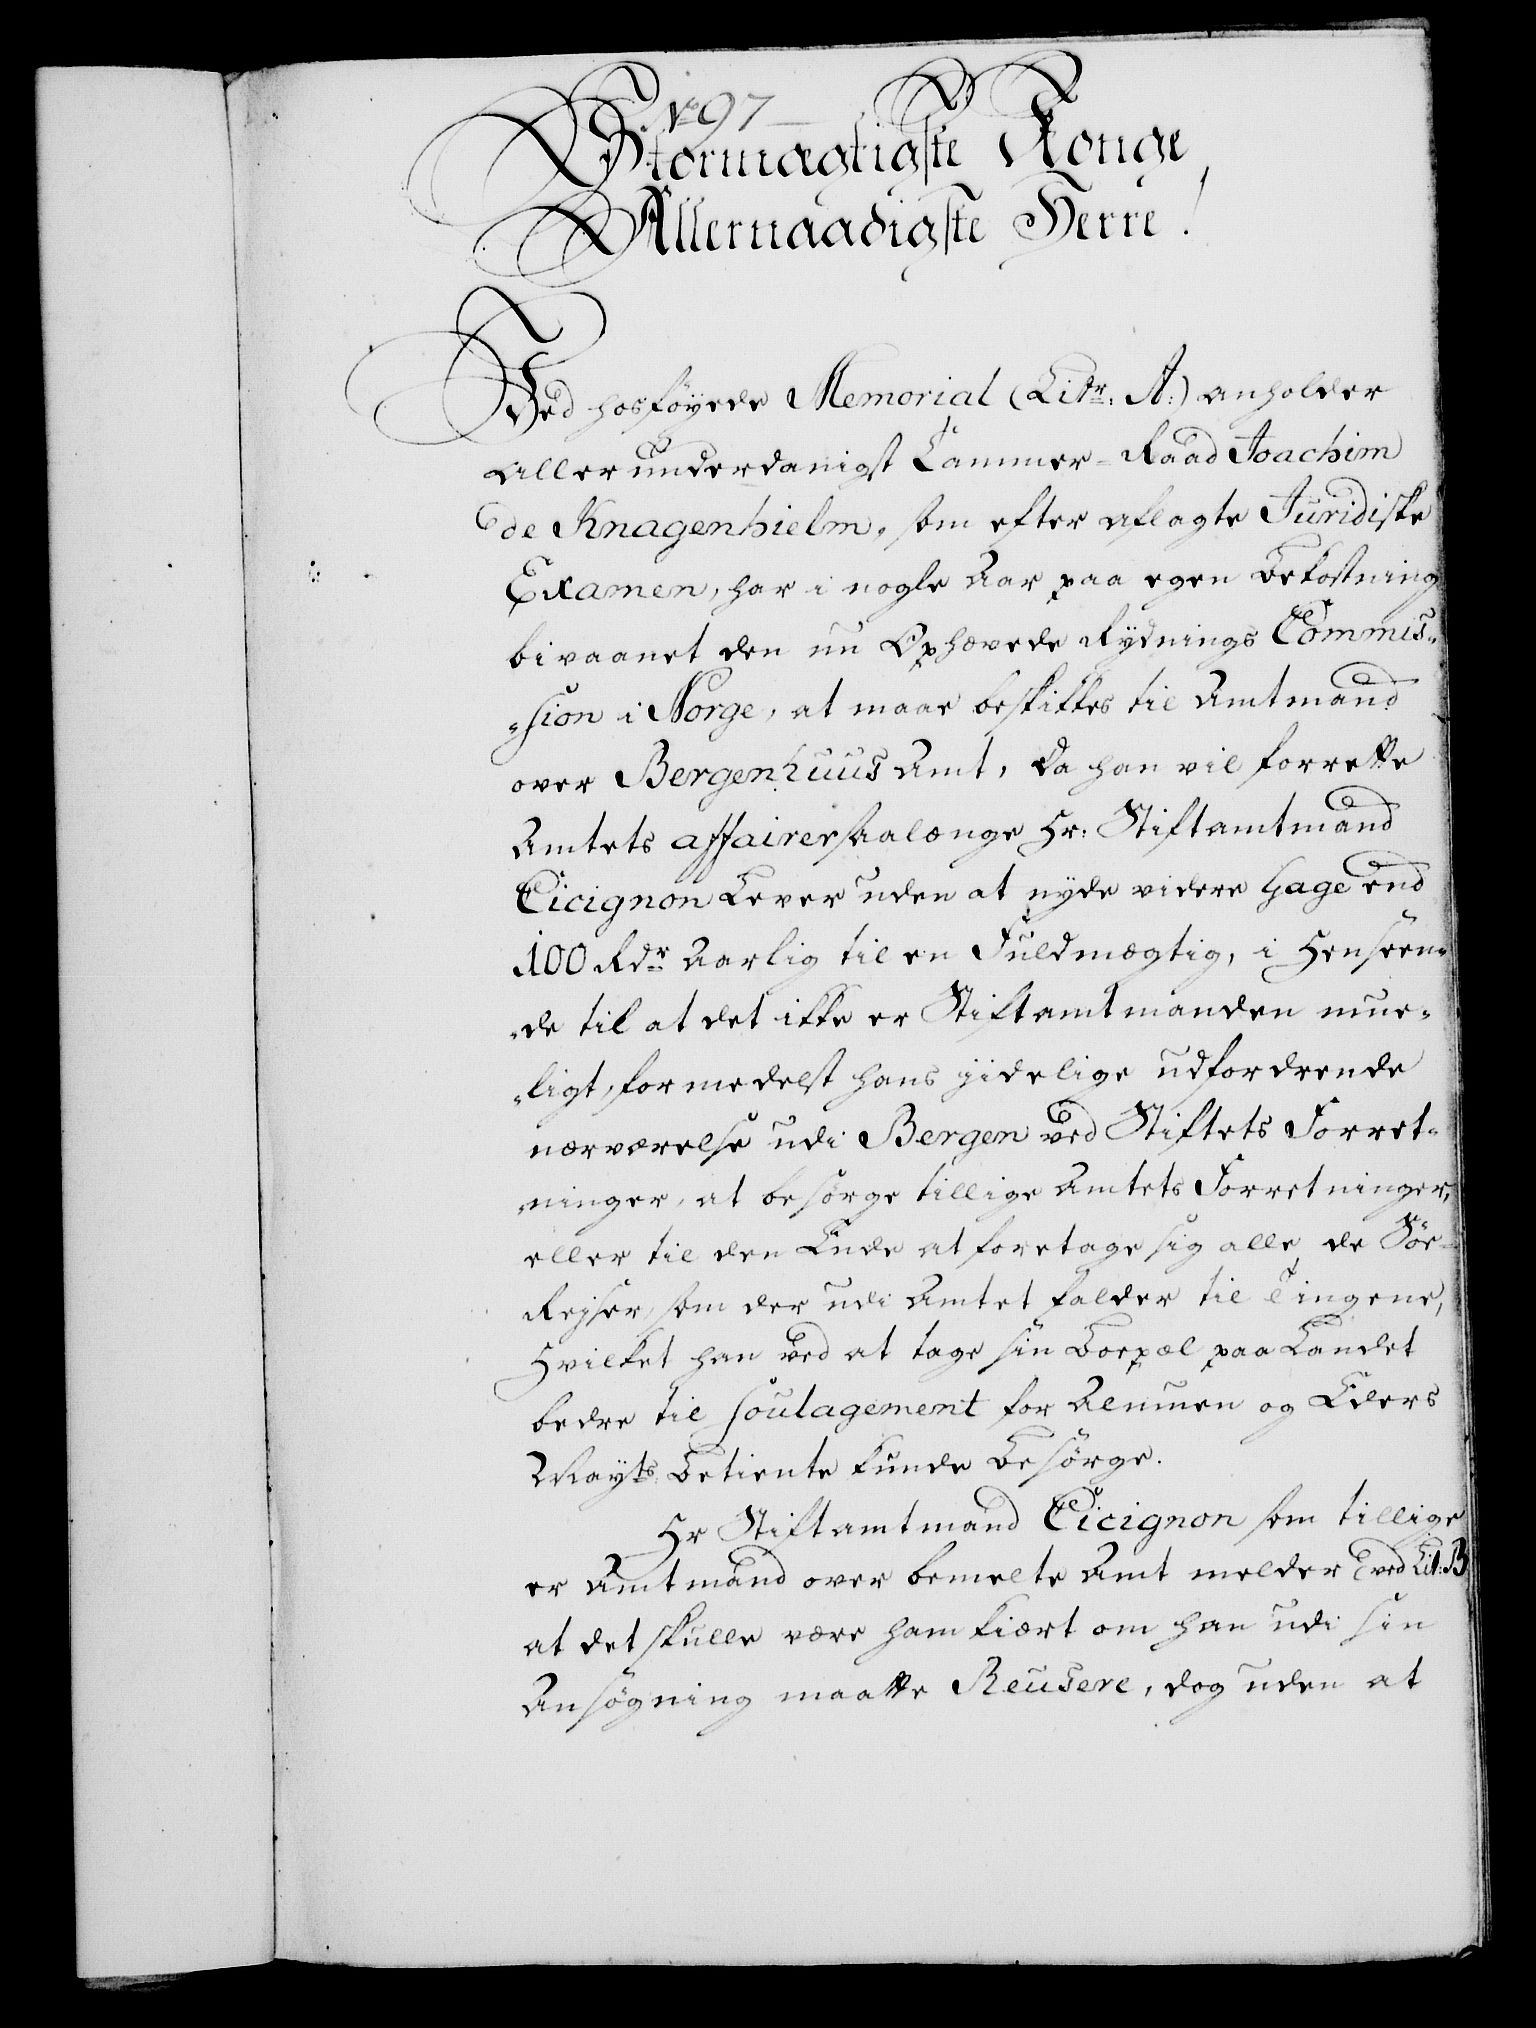 No 97
Stormægtigste Konge,
Allernaadigste Herre!
Ved hosföyede Memorial (Litr: A:) anholder
allerunderdanigst Cammer-Raad Joachim
de Knagenhielm, som efter aflagte Juridiske
Examen, har i nogle Aar paa egen Bekostning
bivaanet den nu Ophævede Rydnings Commis-
-sion i Norge, at maae beskikkes til Amtmand
over Bergenhuus Amt, da han vil forrette
Amtets affairer saalænge Hr: Stiftamtmand
Cicignon Lever uden at nyde videre Gage end
100 Rdr Aarlig til en Fuldmægtig, i Henseen-
-de til at det ikke er Stiftamtmanden mue-
-ligt, formedelst hans jidelige udfordrende
nærværelse udi Bergen ved Stiftets Forret-
-ninger, at besörge tillige Amtets Forretninger,
eller til den Ende at foretage sig alle de Söe-
Rejser, som der udi Amtet falder til Tingene,
Hvilket han ved at tage sin Boepæl paa Landet
bedre til soulagement for Almuen og Eders
Mayts Betiente kunde Besörge.
Hr Stiftamtmand Cicignon som tillige
er Amtmand over bemelte Amt melder ved Lit: B
at det skulle være ham kiært om han udi sin
Ansögning maatte Reusere, dog uden at